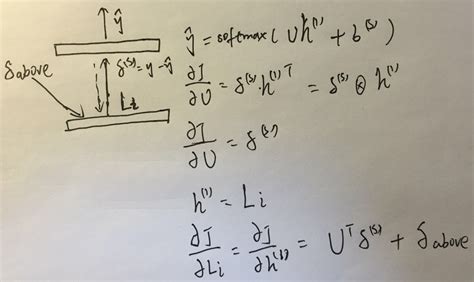 ŷ
δ above
δ⁽ˢ⁾ = y - ŷ
ŷ = softmax( U h⁽¹⁾ + b⁽ˢ⁾ )
∂J/∂U = δ⁽ˢ⁾ · h⁽¹⁾ᵀ = δ⁽ˢ⁾ ⊗ h⁽¹⁾
∂J/∂U = δ⁽ˢ⁾
h⁽¹⁾ = Li
∂J/∂Li = ∂J/∂h⁽¹⁾ = Uᵀ δ⁽ˢ⁾ + δ above